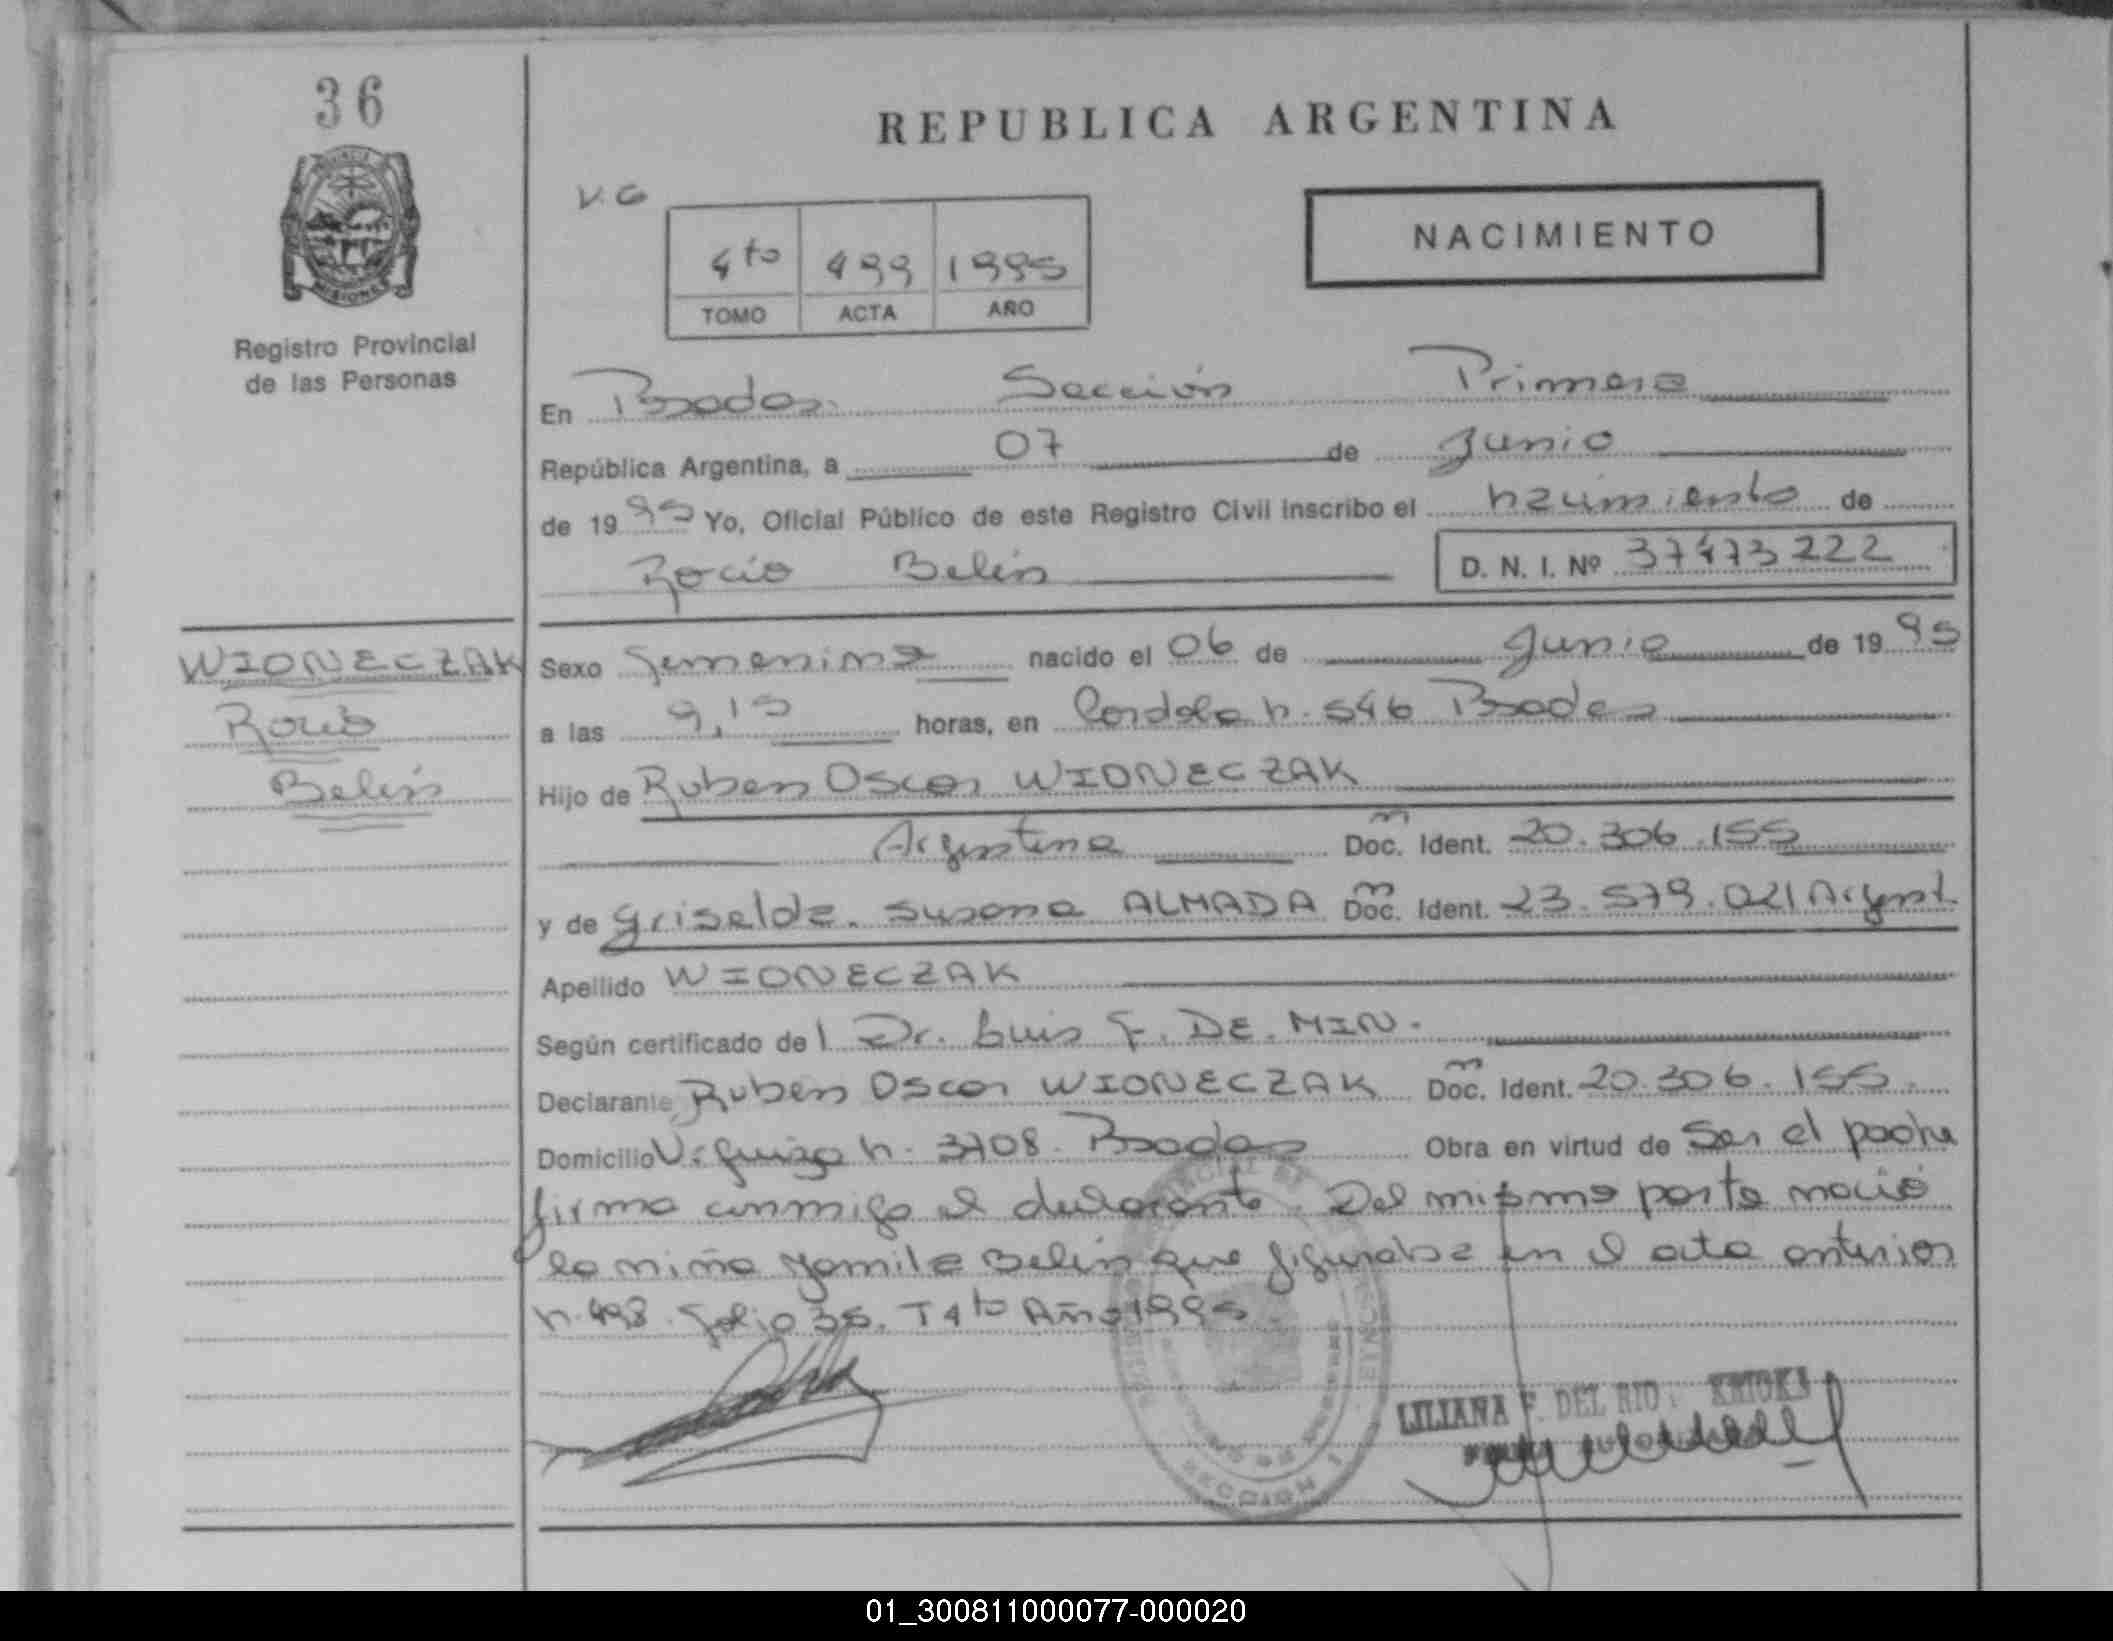 36
REPUBLICA ARGENTINA
V.G
4to 499 1995
TOMO ACTA AÑO
NACIMIENTO
MISIONES
Registro Provincial
de las Personas
En Posadas. Sección Primera
República Argentina, a 07 de Junio
de 1995 Yo, Oficial Público de este Registro Civil inscribo el nacimiento de
Rocio Belén D. N. I. Nº 37473222
WIONECZAK
Rocio
Belén
Sexo Femenino nacido el 06 de Junio de 1995
a las 9,15 horas, en Cordoba n. 546 Posadas
Hijo de Ruben Oscar WIONECZAK
Argentina Doc. Ident. 20.306.155
y de Griselda. Susana ALMADA Doc. Ident. 23.579.021 Argent.
Apellido WIONECZAK
Según certificado del Dr. Luis F. DE. MIN.
Declarante Ruben Oscar WIONECZAK Doc. Ident. 20.306.155.
Domicilio Urquiza n. 3708. Posadas Obra en virtud de Ser el padre
firma conmigo el declarante. Del mismo parto nació
la niña Yamila Belén que figuraba en el acta anterior
n. 498. Folio 35. T 4to Año 1995
SECCION 1
LILIANA F. DEL RIO
01_300811000077-000020